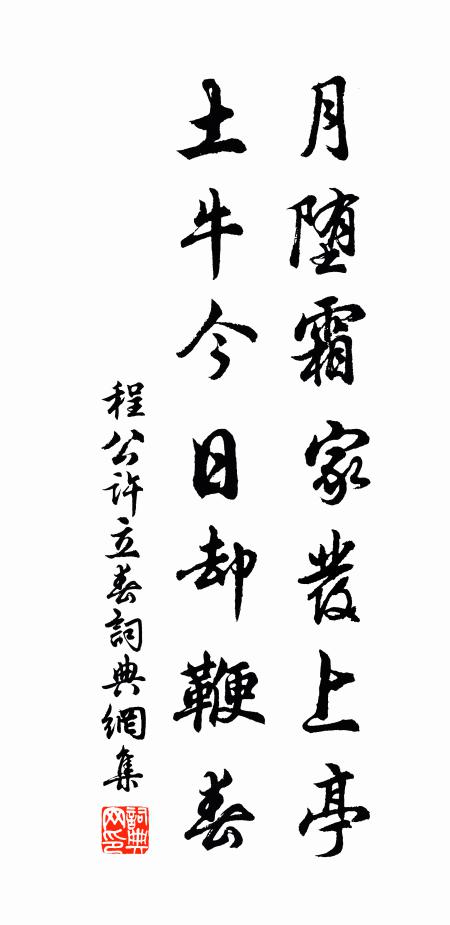 月堕霜家發上亭
土牛今日却鞭春
程公许立春詞典網集
詞典网印